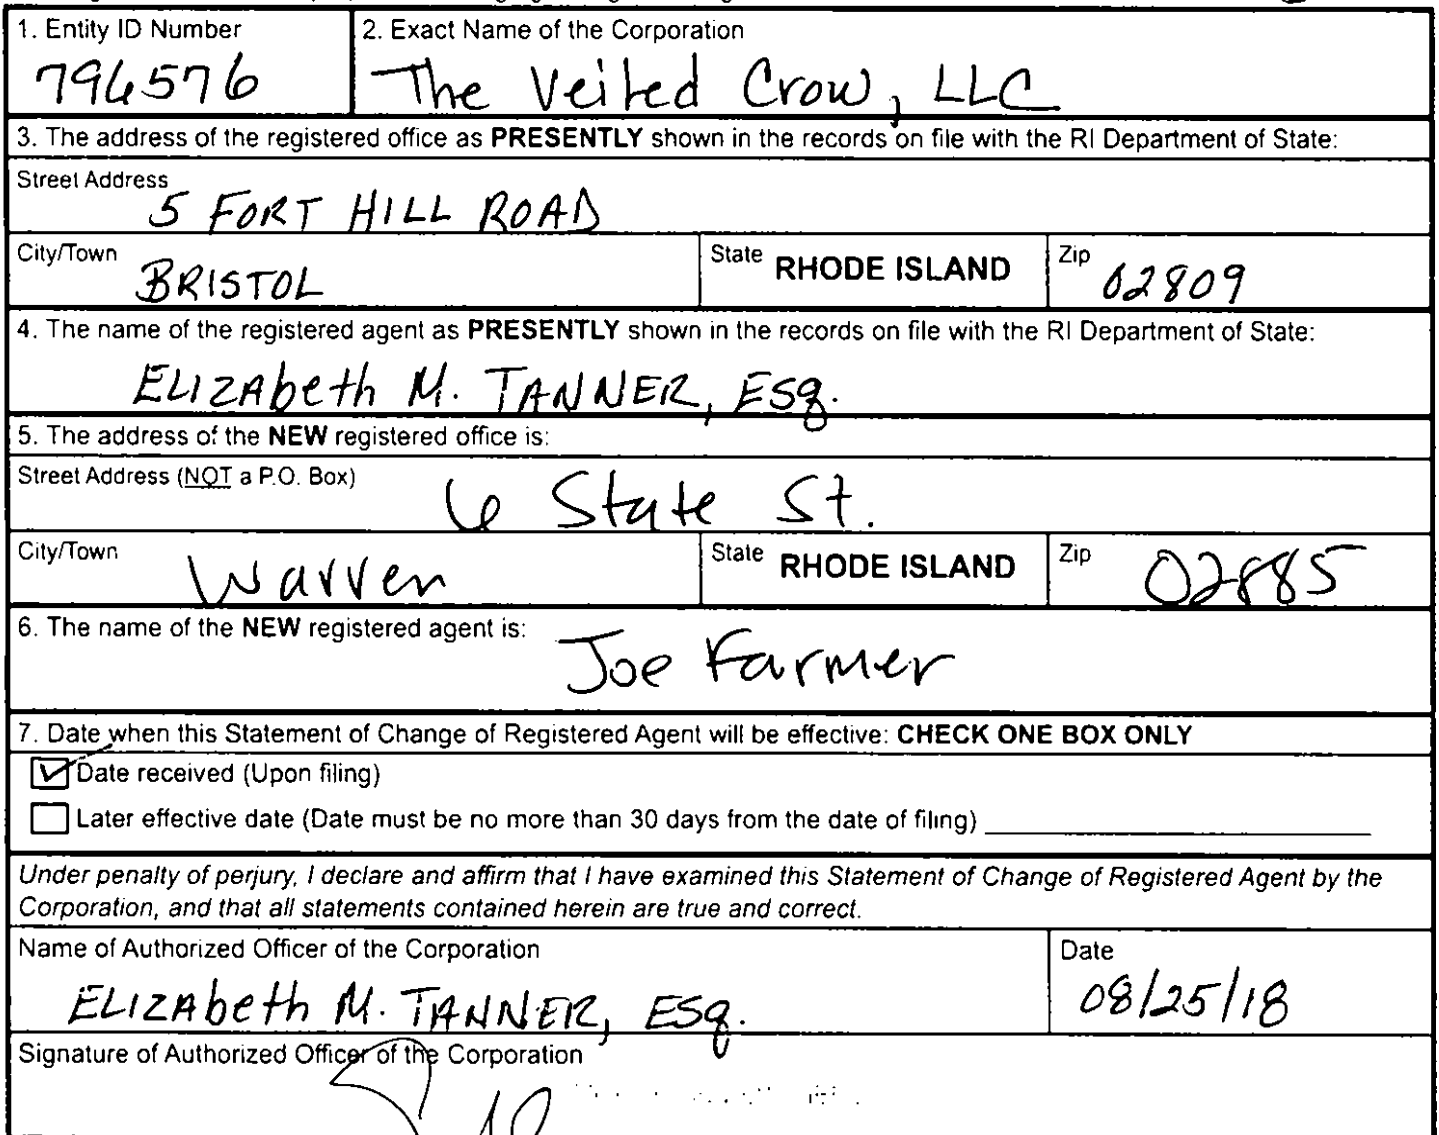 1. Entity ID Number
796576
2. Exact Name of the Corporation
The Veiled Crow, LLC
3. The address of the registered office as PRESENTLY shown in the records on file with the RI Department of State:
Street Address
5 FORT HILL ROAD
City/Town
BRISTOL
State RHODE ISLAND
Zip 02809
4. The name of the registered agent as PRESENTLY shown in the records on file with the RI Department of State:
ELIZAbeth M. TANNER, ESq.
5. The address of the NEW registered office is:
Street Address (NOT a P.O. Box)
6 State St.
City/Town
Warren
State RHODE ISLAND
Zip 02885
6. The name of the NEW registered agent is:
Joe Farmer
7. Date when this Statement of Change of Registered Agent will be effective: CHECK ONE BOX ONLY
Date received (Upon filing)
Later effective date (Date must be no more than 30 days from the date of filing)
Under penalty of perjury, I declare and affirm that I have examined this Statement of Change of Registered Agent by the
Corporation, and that all statements contained herein are true and correct.
Name of Authorized Officer of the Corporation
ELIZAbeth M. TANNER, ESq.
Date
08/25/18
Signature of Authorized Officer of the Corporation